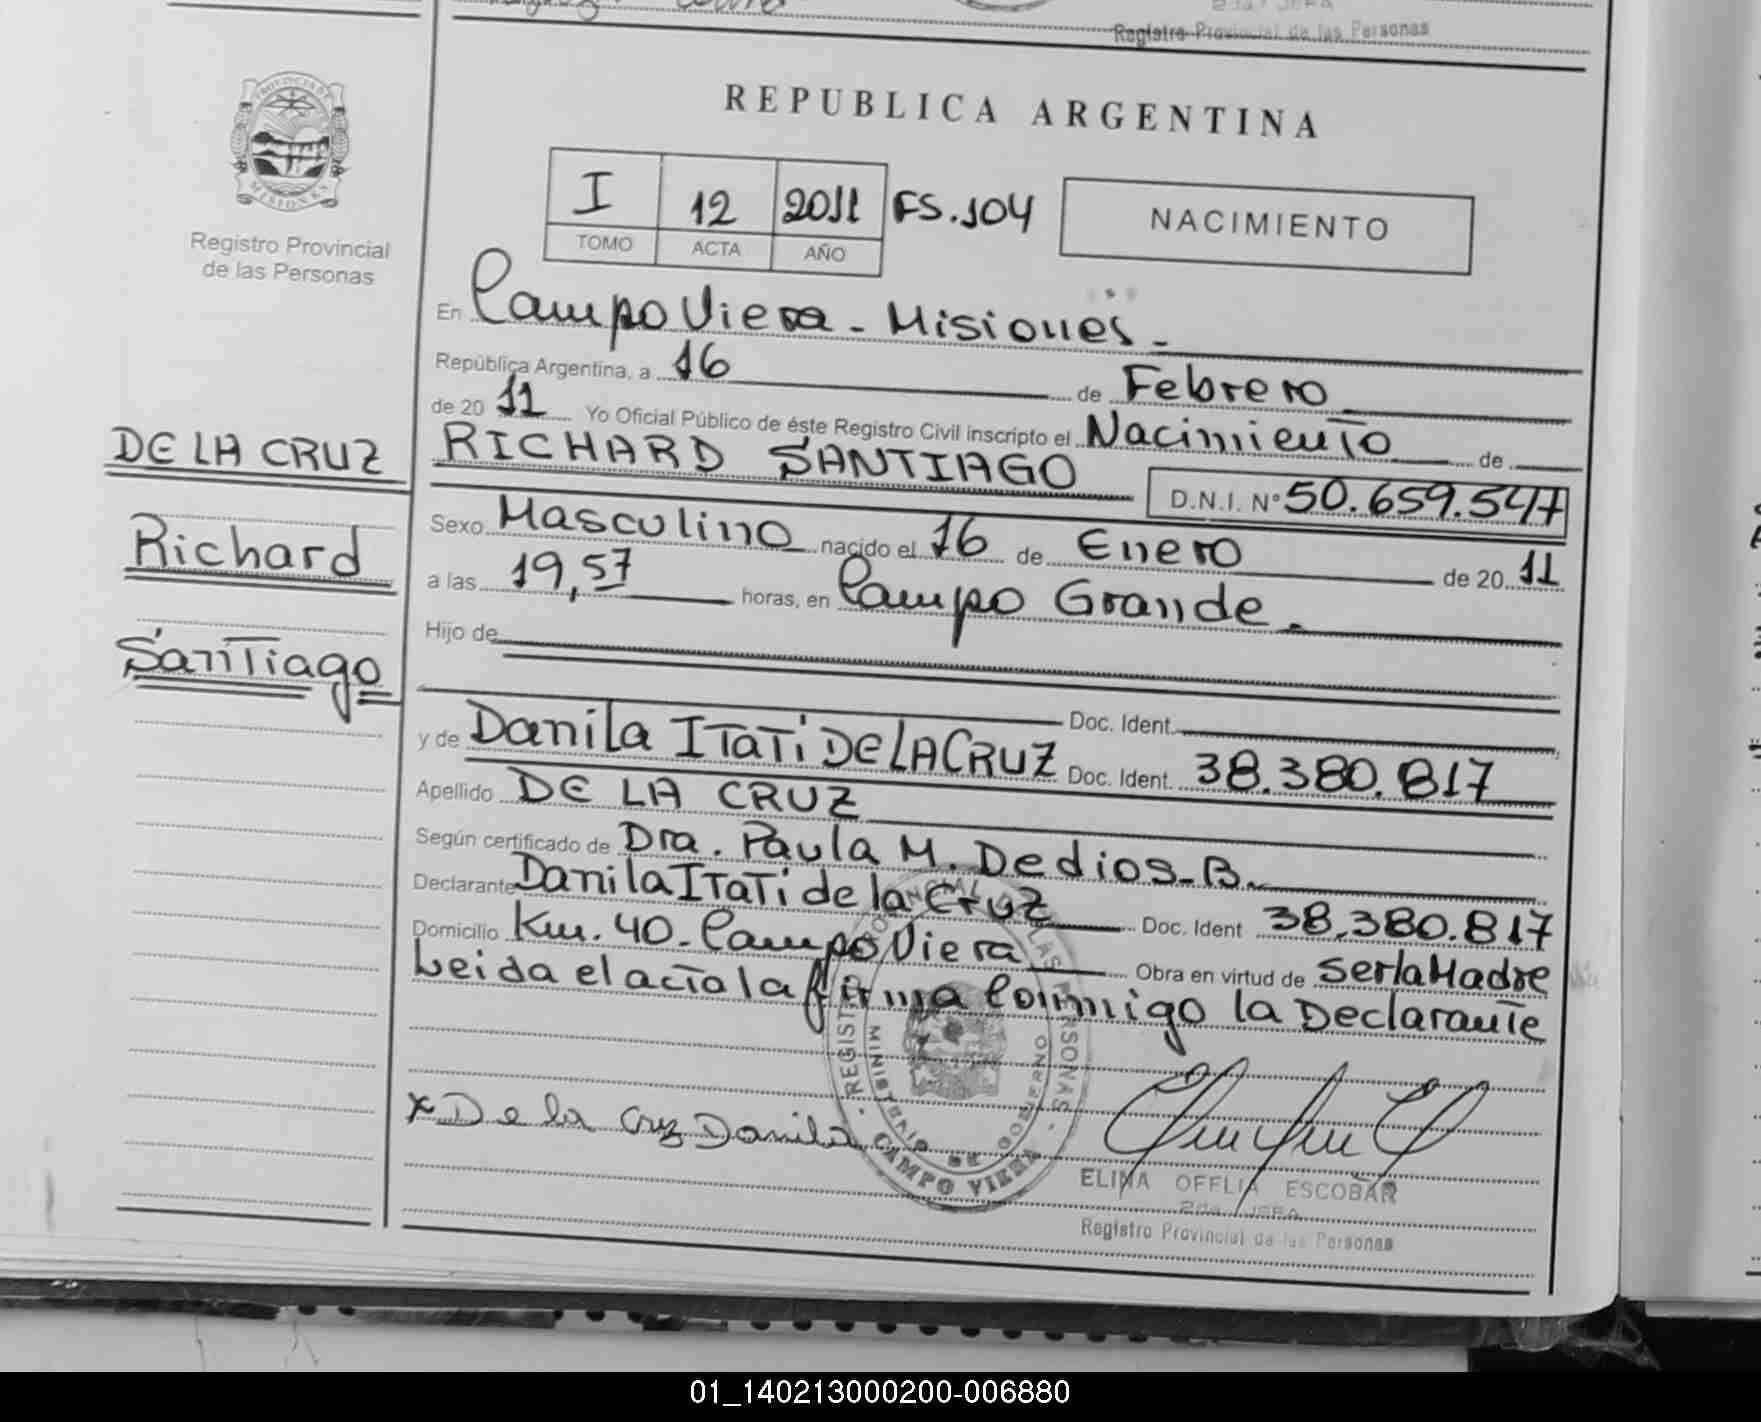 Registro Provincial de las Personas
PROVINCIA DE
MISIONES
Registro Provincial
de las Personas
DE LA CRUZ
Richard
Santiago
REPUBLICA ARGENTINA
I 12 2011 FS.104
TOMO ACTA AÑO
NACIMIENTO
En Campo Viera - Misiones.
República Argentina, a 16 de Febrero
de 20 11 Yo Oficial Público de éste Registro Civil inscripto el Nacimiento de
RICHARD SANTIAGO D.N.I. Nº 50.659.547
Sexo Masculino nacido el 16 de Enero de 20 11
a las 19,57 horas, en Campo Grande.
Hijo de
Doc. Ident.
y de Danila Itati DE LA CRUZ Doc. Ident. 38.380.817
Apellido DE LA CRUZ
Según certificado de Dra. Paula M. Dedios_B.
Declarante Danila Itati de la Cruz Doc. Ident 38.380.817
Domicilio Km. 40_ Campo Viera Obra en virtud de ser la Madre
Leida el acta la firma Conmigo la Declarante
REGISTRO PROVINCIAL DE LAS PERSONAS
MINISTERIO DE GOBIERNO
CAMPO VIERA
x De la Cruz Danila
ELINA OFELIA ESCOBAR
2da. JEFA
Registro Provincial de las Personas
01_140213000200-006880